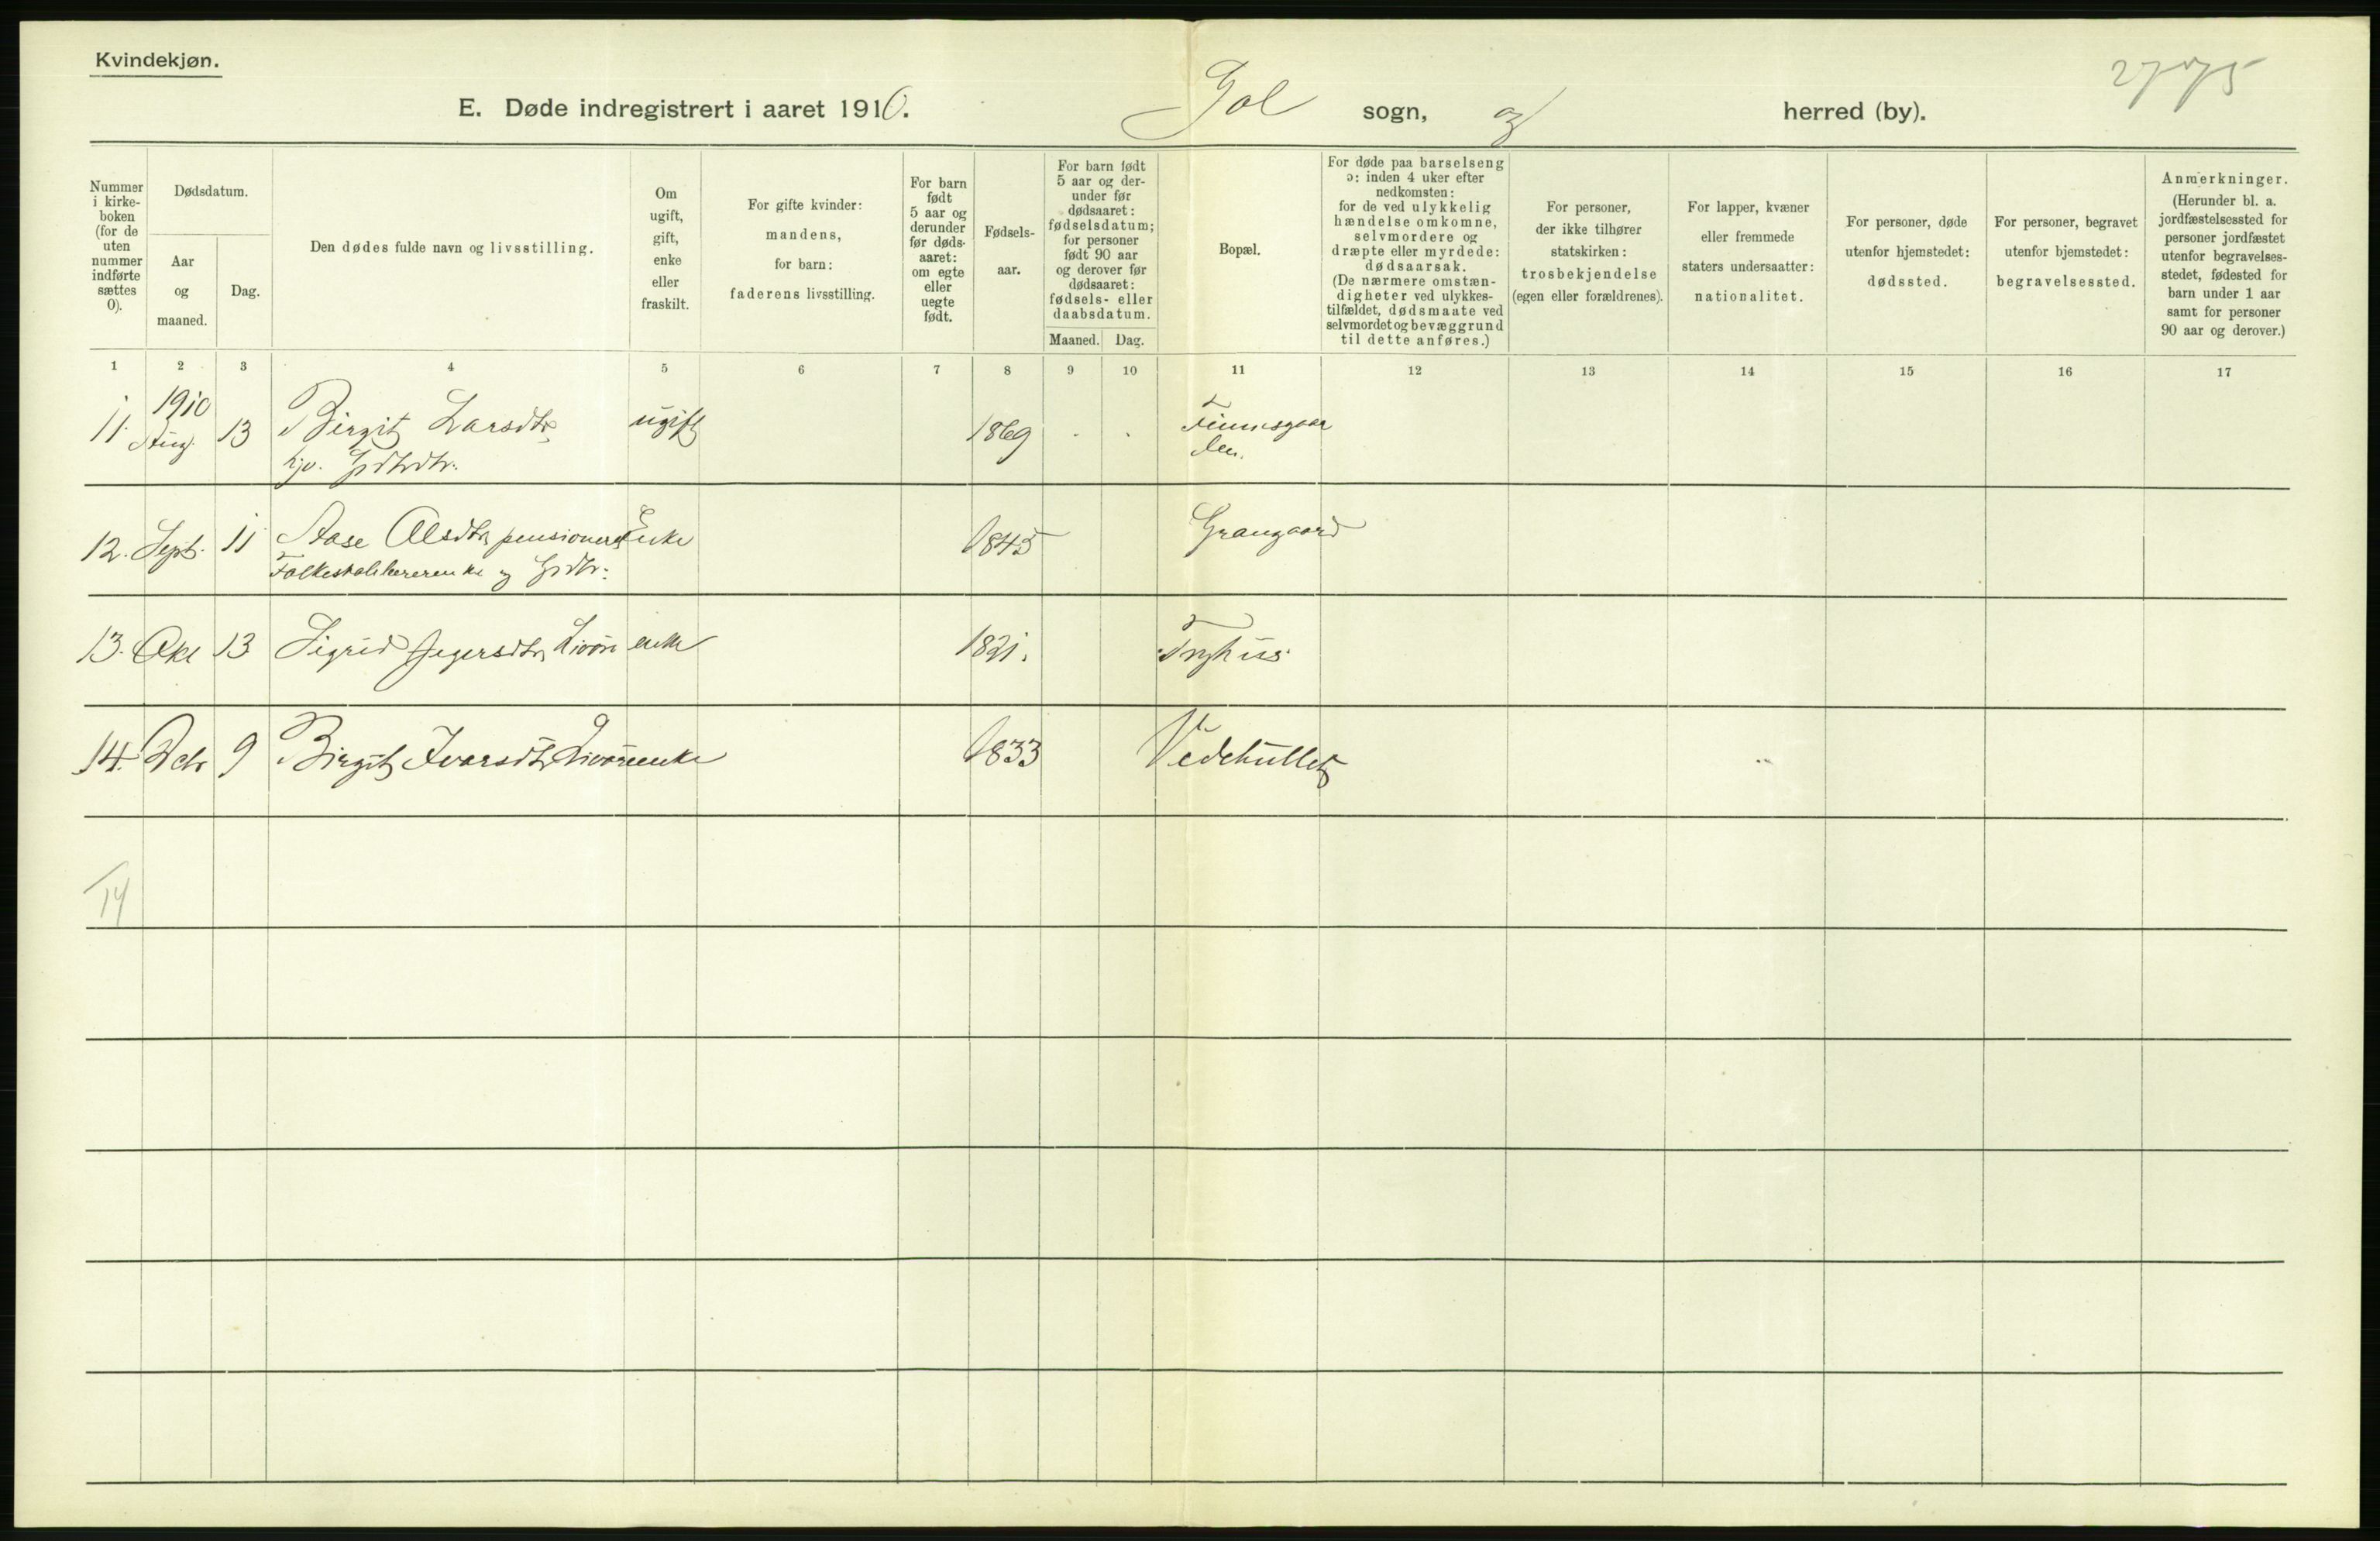 Kvindekjøn.
2775
E. Døde indregistrert i aaret 1910. Gol sogn, herred (by).
Nummer i kirke- boken (for de uten nummer indførte sættes 0).
Dødsdatum.
Aar og maaned.
Dag.
Den dødes fulde navn og livsstilling.
Om ugift, gift, enke eller fraskilt.
For gifte kvinder: mandens, for barn: faderens livsstilling.
For barn født 5 aar og derunder før døds- aaret: om egte eller uegte født.
Fødsels- aar.
For barn født 5 aar og der- under før dødsaaret: fødselsdatum; for personer født 90 aar og derover før dødsaaret: fødsels- eller daabsdatum.
Maaned. Dag.
Bopæl.
For døde paa barselseng ɔ: inden 4 uker efter nedkomsten: for de ved ulykkelig hændelse omkomne, selvmordere og dræpte eller myrdede: dødsaarsak. (De nærmere omstæn- digheter ved ulykkes- tilfældet, dødsmaate ved selvmordet og bevæggrund til dette anføres.)
For personer, der ikke tilhører statskirken: trosbekjendelse (egen eller forældrenes).
For lapper, kvæner eller fremmede staters undersaatter: nationalitet.
For personer, døde utenfor hjemstedet: dødssted.
For personer, begravet utenfor hjemstedet: begravelsessted.
Anmerkninger. (Herunder bl. a. jordfæstelsessted for personer jordfæstet utenfor begravelses- stedet, fødested for barn under 1 aar samt for personer 90 aar og derover.)
1 2 3 4 5 6 7 8 9 10 11 12 13 14 15 16 17
1910
11. Aug. 13 Birgit Larsdtr ugift 1869 Finnsgaar
den.
12. Sept. 11 Aase Olsdtr pensioneret Enke 1845 Grangaard
Folkeskolelærerenke og
13. Okt 13 Sigrid enke 1821. Trøhus
14. Dcb 9 Birgit Ivarsdtr 1833 Vedehullet
14